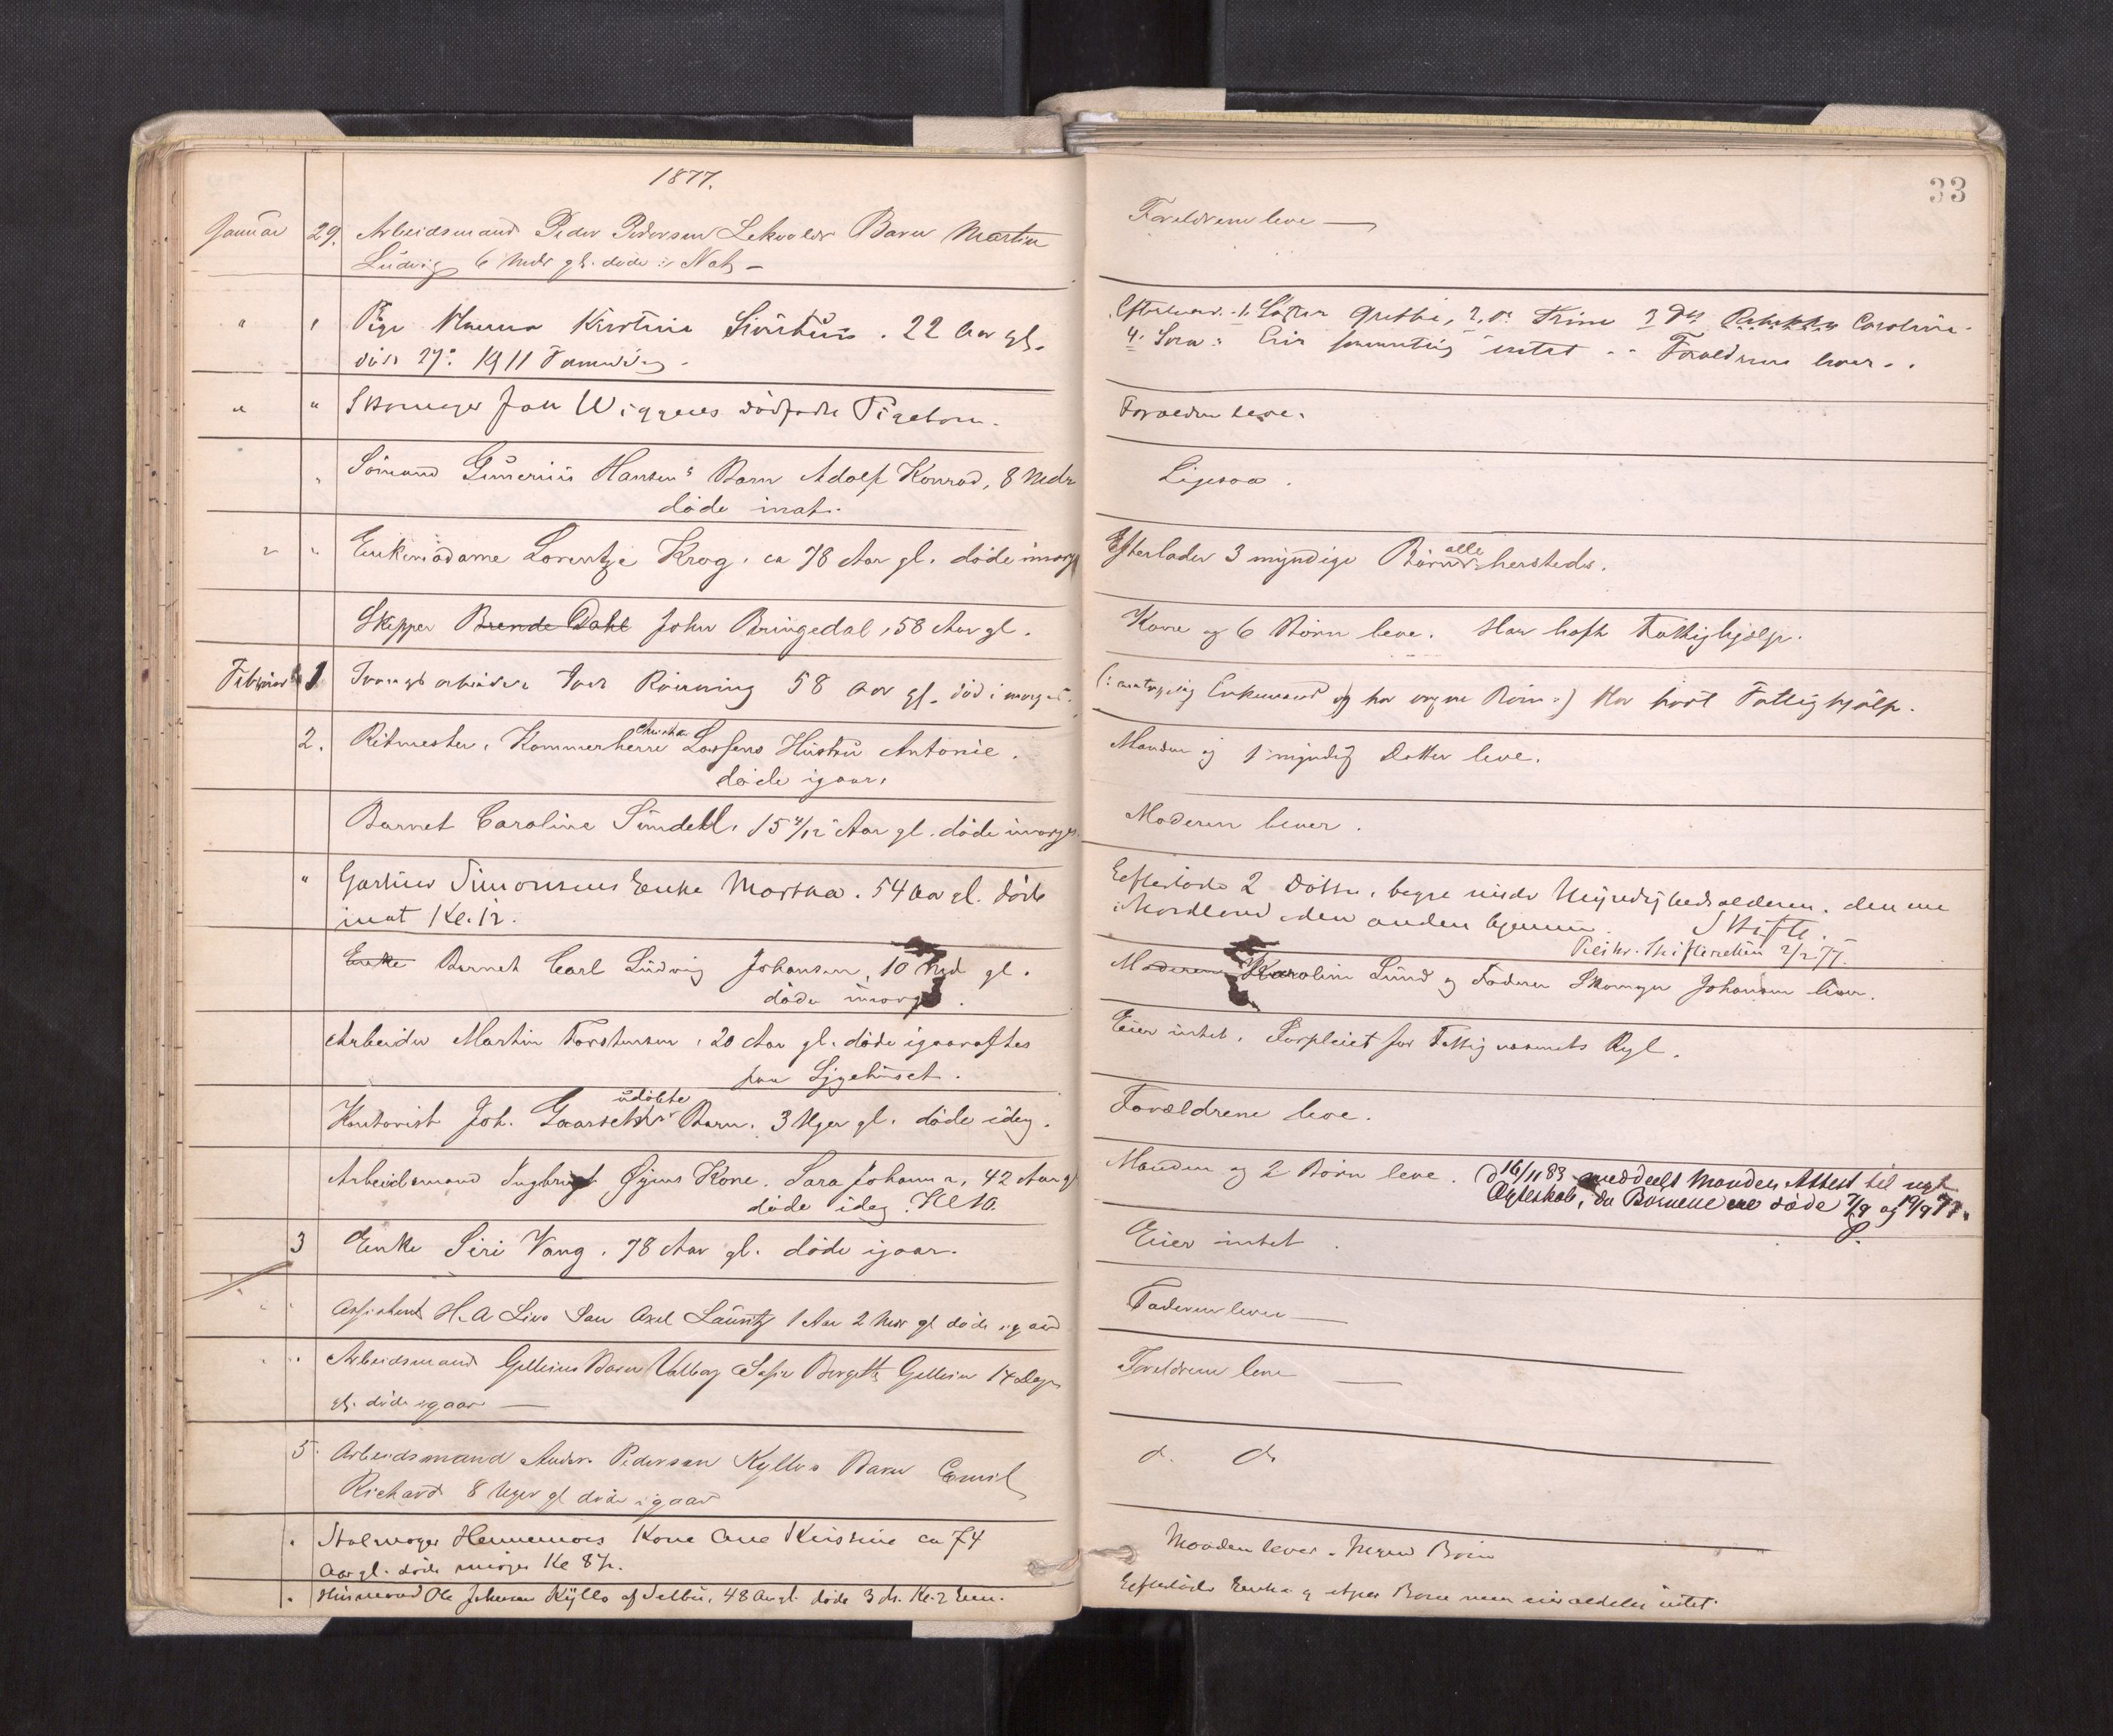 1877.
33
Januar 29. Arbeidsmand Peder Pedersen Lekvolds Barn Martin
Ludvig 6 Mdr gl. døde i Nat –
Forældrene leve —
" " Pige Hanna Kirstine . 22 Aar gl.
død 27.
Efterlader 1. Søster Grethe, 2. do Trine 3 do Caroline
4. Sara: Eier intet Forældrene lever..
" " Skomager Joh Wiggens dødfødte Pigebarn.
Forældre leve.
" " Sömand Gunerius Hansens Barn Adolf Konrad, 8 Mdr
døde inat.
Ligesaa.
" " Enkemadame Lorentze Krog. ca 78 Aar gl. døde imorges
Efterlader 3 myndige Børn alle hersteds.
Skipper Brende Dahl John Bringedal, 58 Aar gl.
Kone og 6 Børn leve. Har haft Fattighjælp.
Februar 1 Tvangsarbeider Iver Rønning 58 Aar gl. död i morges.
(: Enkemand og har ingen Børn :) Har havt Fattighjælp.
2. Ritmester, Kammerherre Lossens Hustru Antonie.
døde igaar.
Manden og 1 myndig Datter leve.
Barnet Caroline Sundell, 15 /12 Aar gl. døde imorges.
Moderen lever.
" Gartner Simonsens Enke Martha. 54 Aar gl. døde
inat Kl. 12.
Efterlod 2 Døttre, begge under Myndighedsalderen, den ene
i Nordland den anden hjemme. Skifte.
Skifteretten 2/2 77.
Enke Barnet Carl Ludvig Johansen, 10 Md gl.
døde imorges.
Moderen Karoline Lund og Faderen Skomager Johansen lever.
Arbeider Martin Torstensen, 20 Aar gl. døde igaaraftes
paa Sygehuset.
Eier intet. Forpleiet for Fattigvæsenets Regl.
Kontorist Joh. Gaarseths udøbte Barn, 3 Uger gl. døde idag.
Forældrene leve.
Arbeidsmand Ingbrigt Øyens Kone. Sara Johanna, 42 Aar gl
døde idag. Kl 10.
Manden og 2 Børn leve. D 16/11 83 meddeelt Manden Attest til nyt
Ægteskab, da Børnene ere døde 7/9 og 19/9 77.
P.
3 Enke Siri Vang, 78 Aar gl. døde igaar.
Eier intet.
" Assistent H. A Lies Søn Axel Lauritz 1 Aar 2 Mdr gl døde igaar
Faderen lever —
" " Arbeidsmand Gelleins Barn Valborg Sofie Bergitte Gellein 14 Dage
gl. døde igaar —
Forældrene leve —
5. Arbeidsmand Anders Pedersen Kyllos Barn Emil
Richard 8 Uger gl døde igaar
do. do
" Kone Ane Kirstine ca 74
Aar gl. døde imorges Kl 8½.
Manden lever. Ingen Børn
" Husmand Ole Johnsen Kyllo af Selbu, 48 Aar gl. døde 3 ds. Kl. 2 Em.
Efterlod Enke og Børn men eier aldeles intet.